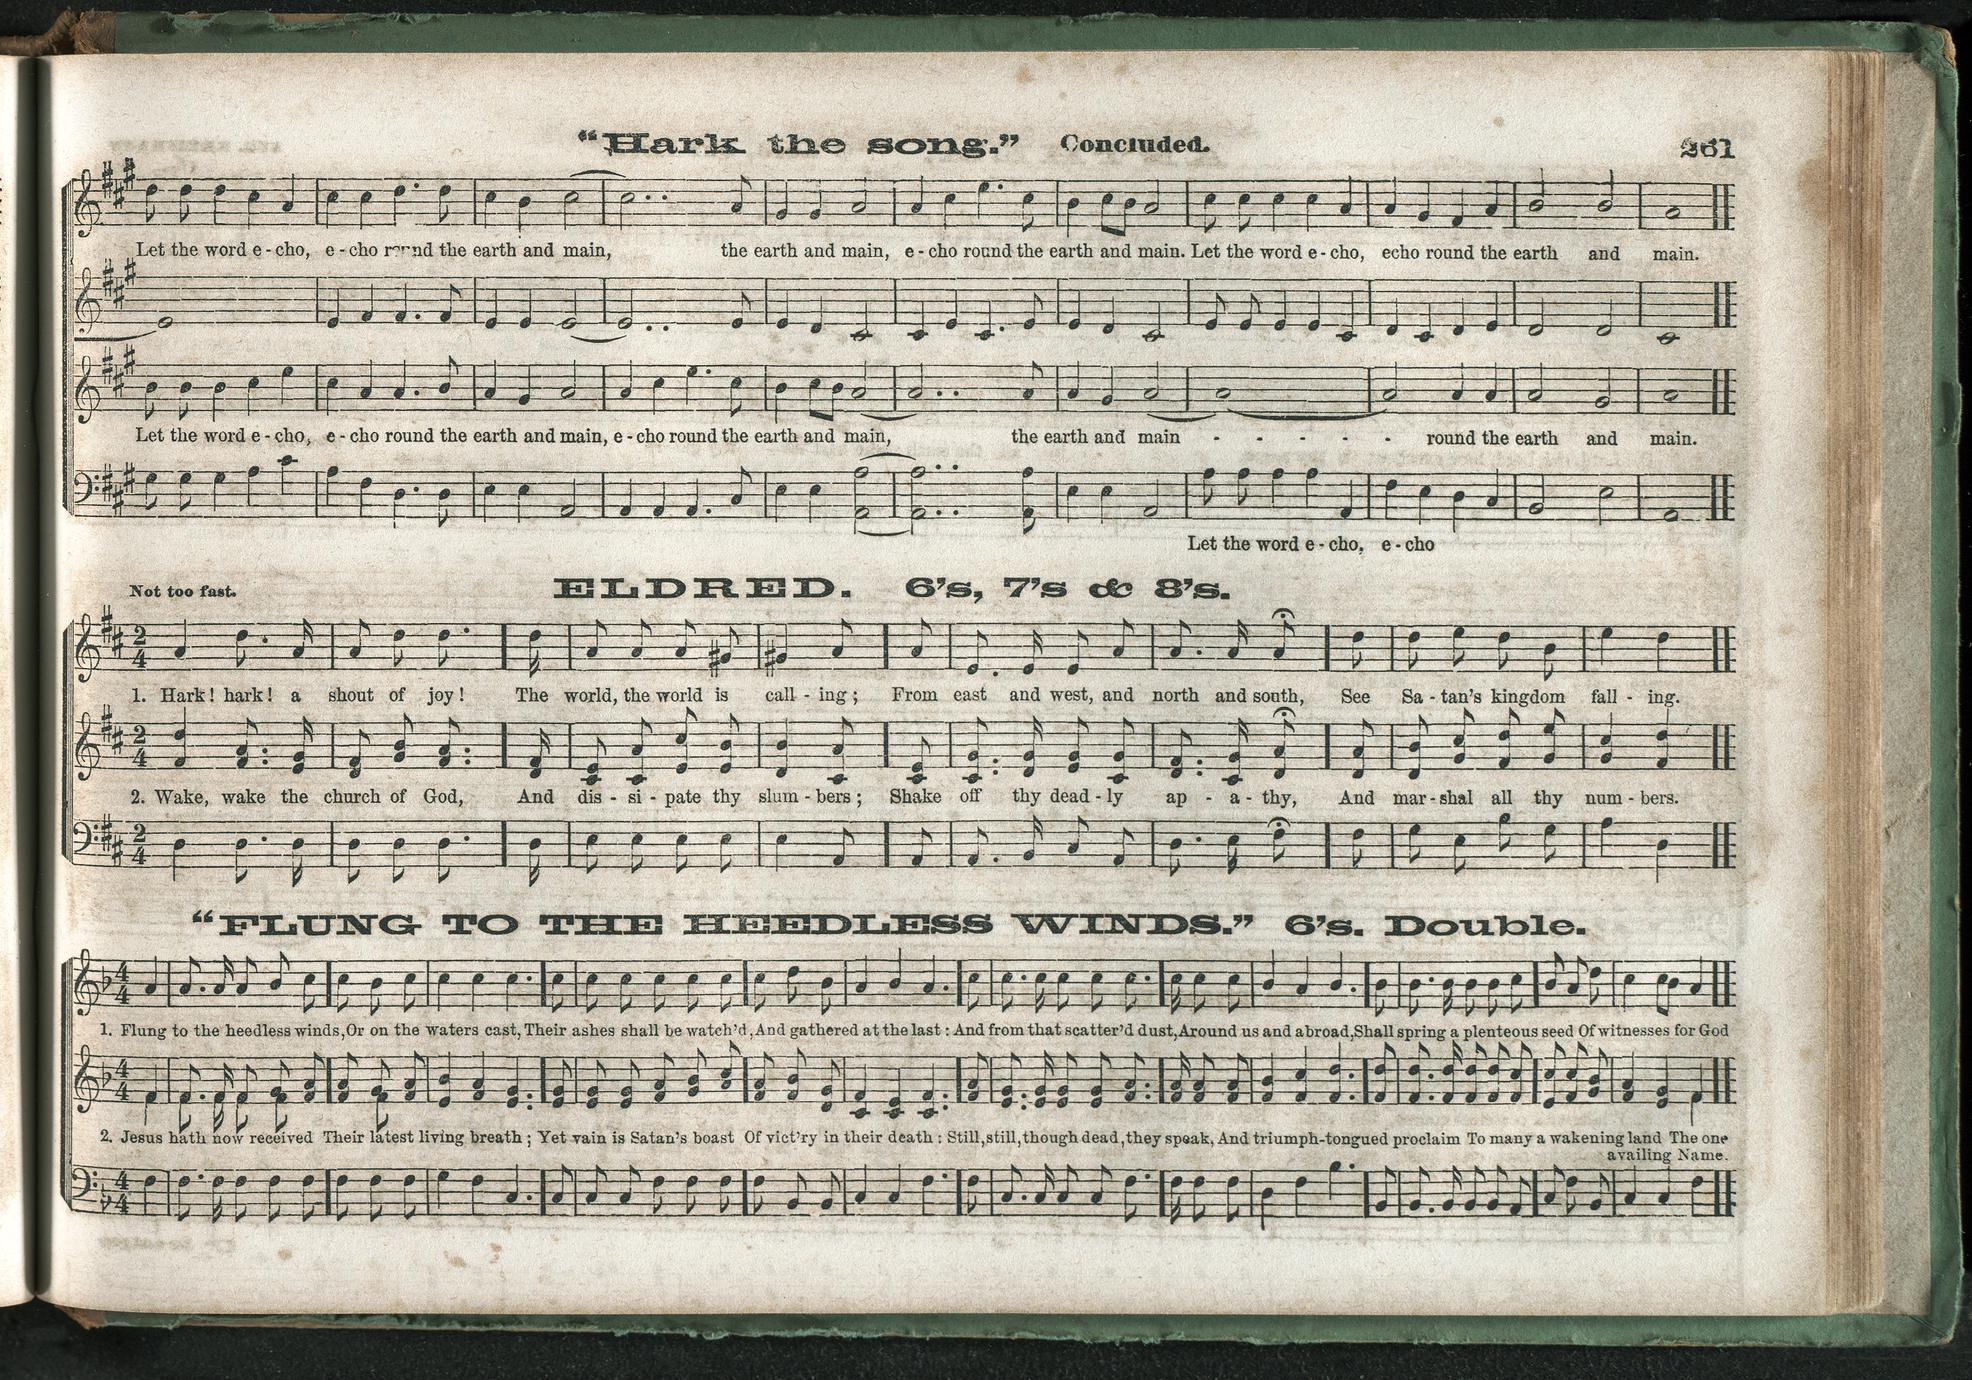 “Hark the song.” Concluded. 261
Let the word e - cho, e - cho round the earth and main, the earth and main, e - cho round the earth and main. Let the word e - cho, echo round the earth and main.
Let the word e - cho, e - cho round the earth and main, e - cho round the earth and main, the earth and main - - - - - round the earth and main.
Let the word e - cho, e - cho
Not too fast. ELDRED. 6’s, 7’s & 8’s.
1. Hark! hark! a shout of joy! The world, the world is call - ing; From east and west, and north and south, See Sa - tan’s kingdom fall - ing.
2. Wake, wake the church of God, And dis - si - pate thy slum - bers; Shake off thy dead - ly ap - a - thy, And mar - shal all thy num - bers.
“FLUNG TO THE HEEDLESS WINDS.” 6’s. Double.
1. Flung to the heedless winds, Or on the waters cast, Their ashes shall be watch’d, And gathered at the last: And from that scatter’d dust, Around us and abroad, Shall spring a plenteous seed Of witnesses for God
2. Jesus hath now received Their latest living breath; Yet vain is Satan’s boast Of vict’ry in their death: Still, still, though dead, they speak, And triumph-tongued proclaim To many a wakening land The one
availing Name.